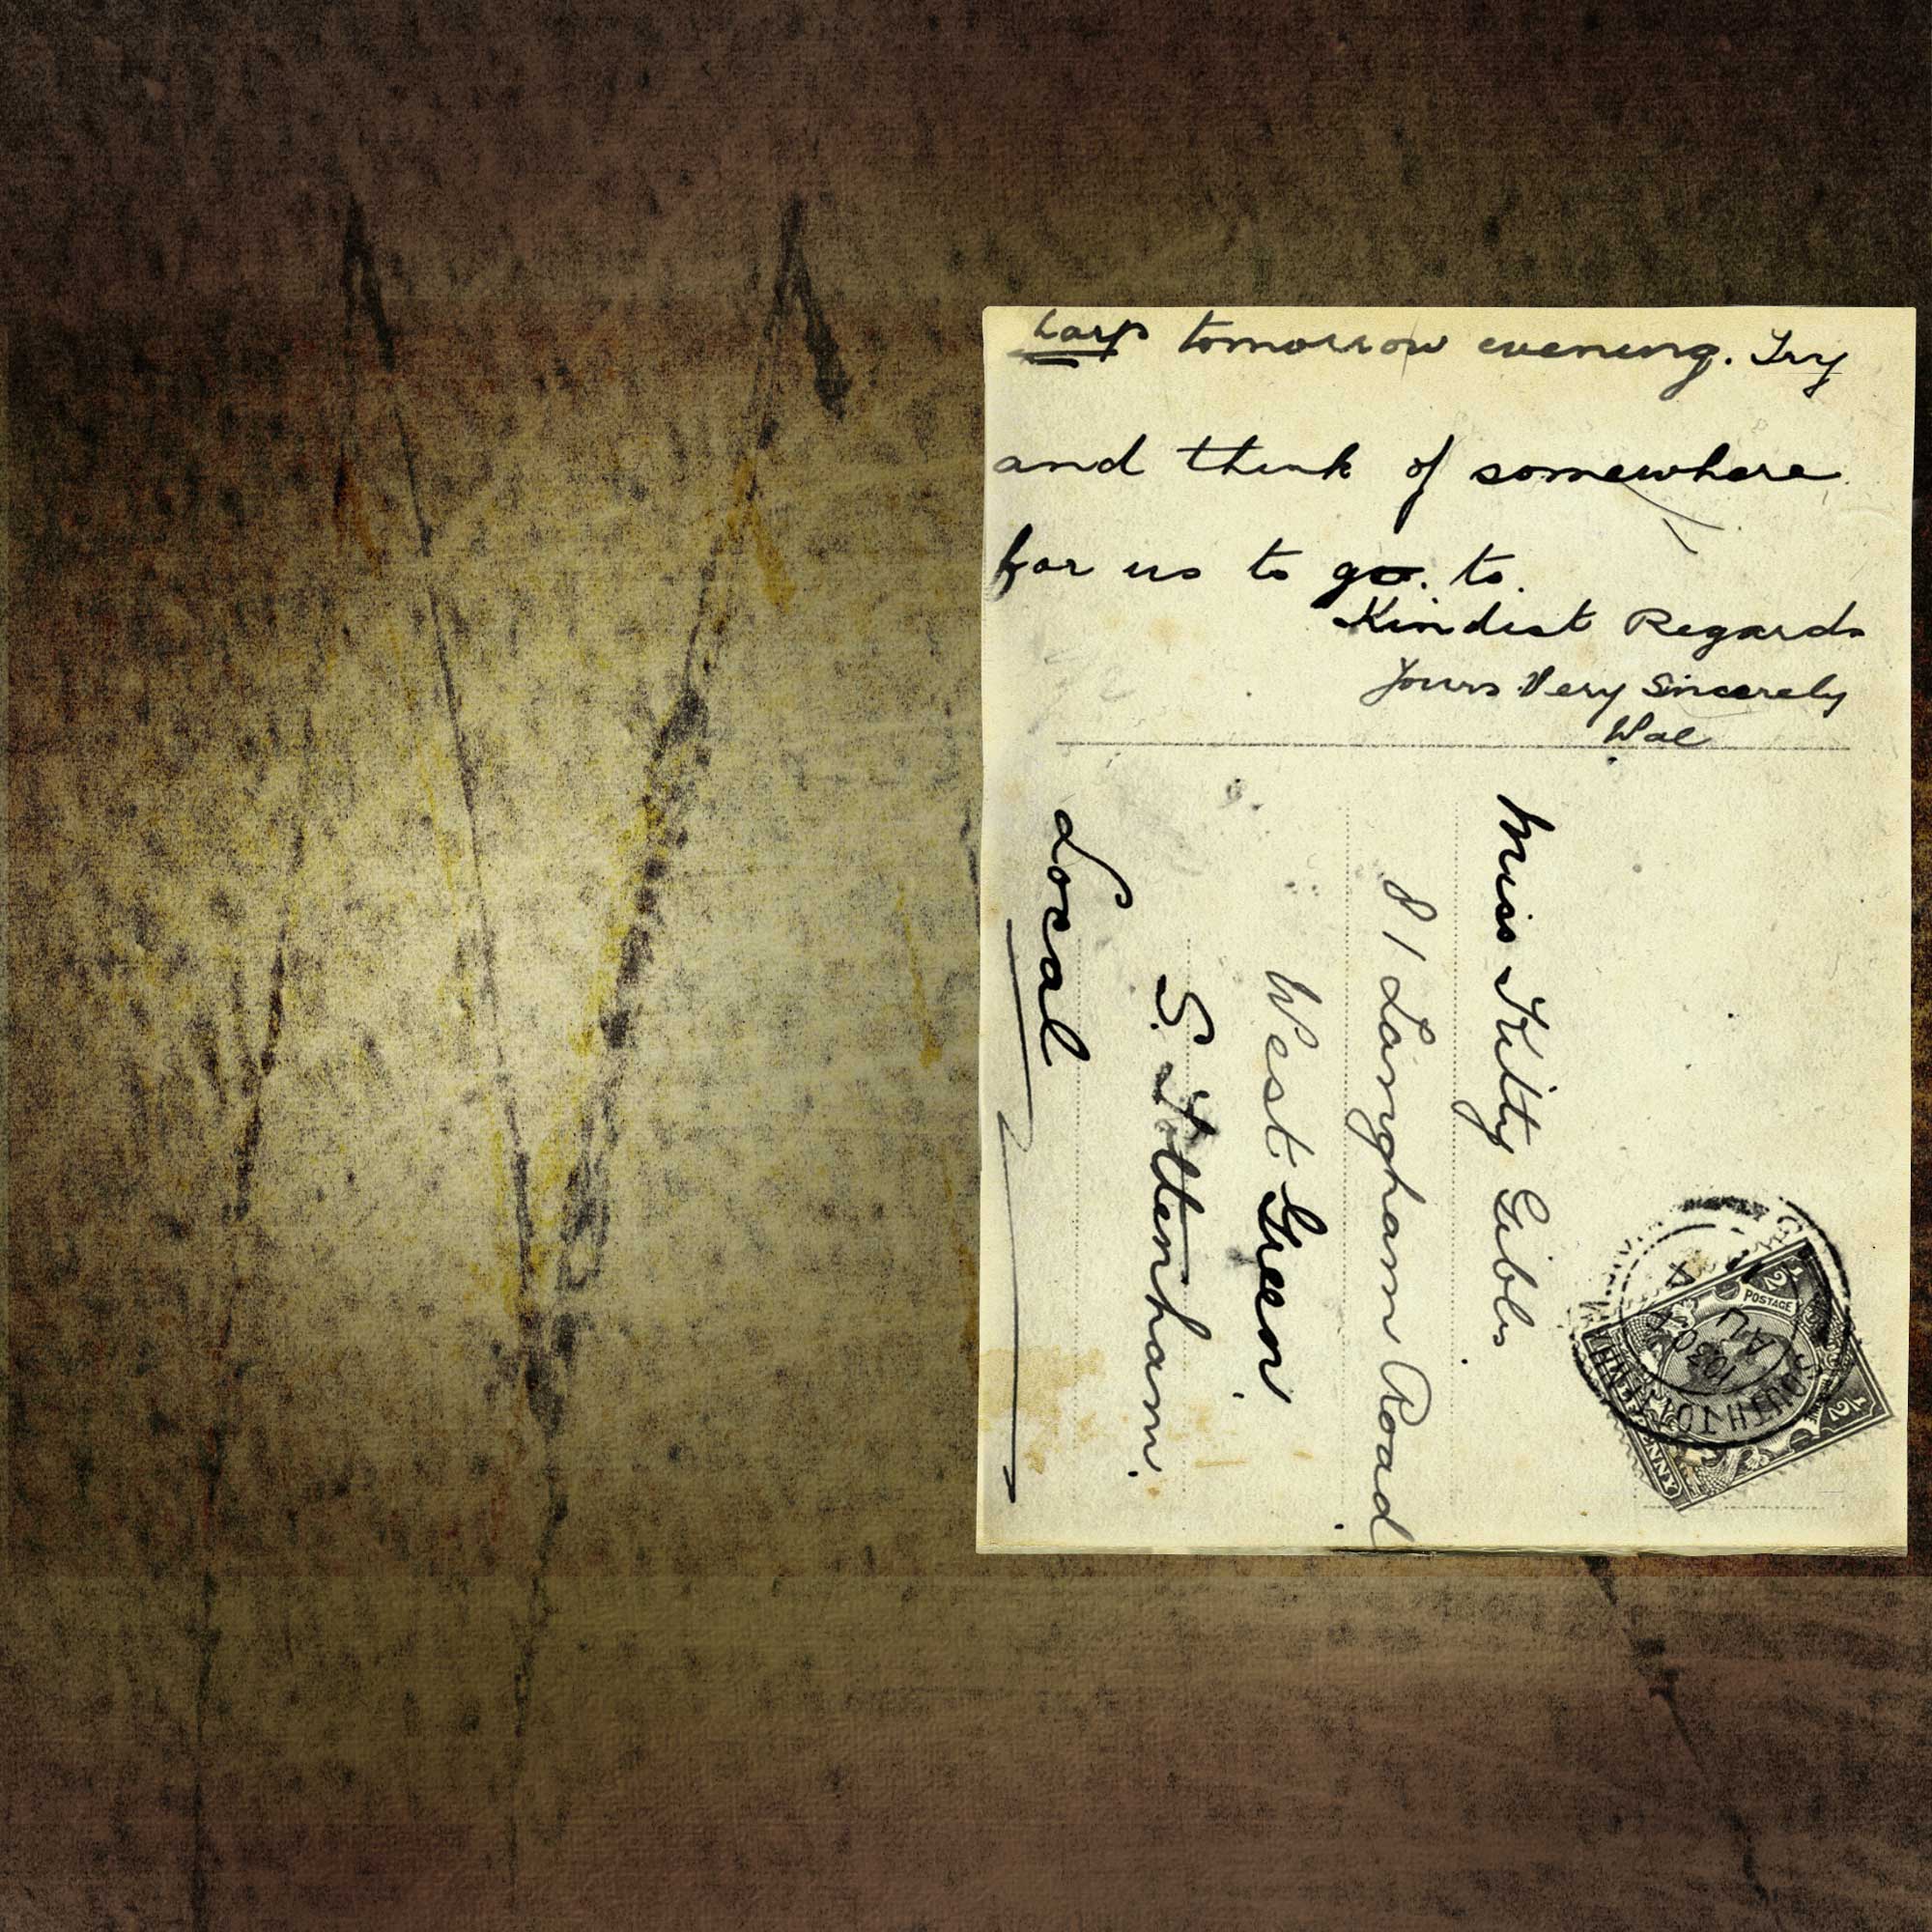 harp tomorrow evening. Try
and think of somewhere
for us to go. to.
Kindest Regards
Yours Very Sincerely
Wal
Miss Kitty Gibbs
81 Langham Road
West Green
S. Tottenham.
Local
POSTAGE
1/2
1/2
SOUTH TOTTENH
1030